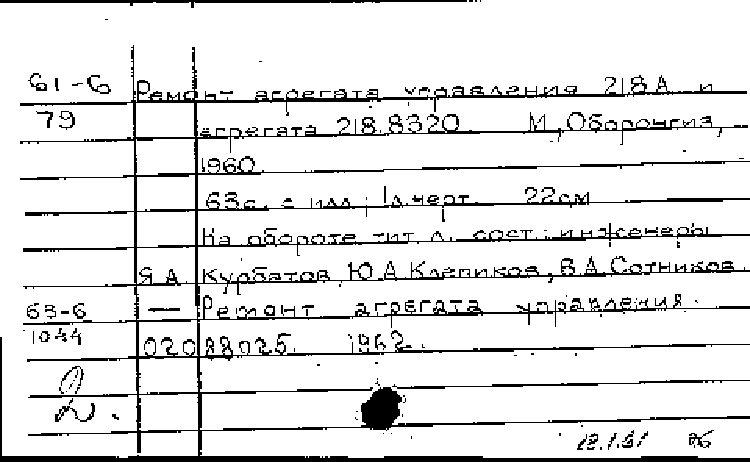 61-6 Ремонт агрегата управления 218А и
79 агрегата 218.8320 М, Оборонгиз,
1960
63с. с илл; 1л.черт. 22см
На обороте тит. л. сост.: инженеры
Я А Курбатов, Ю.А Клепиков, В.А.Сотников.
63-6 — Ремонт агрегата управления.
1044
02088025. 1962.
2.
12.1.81